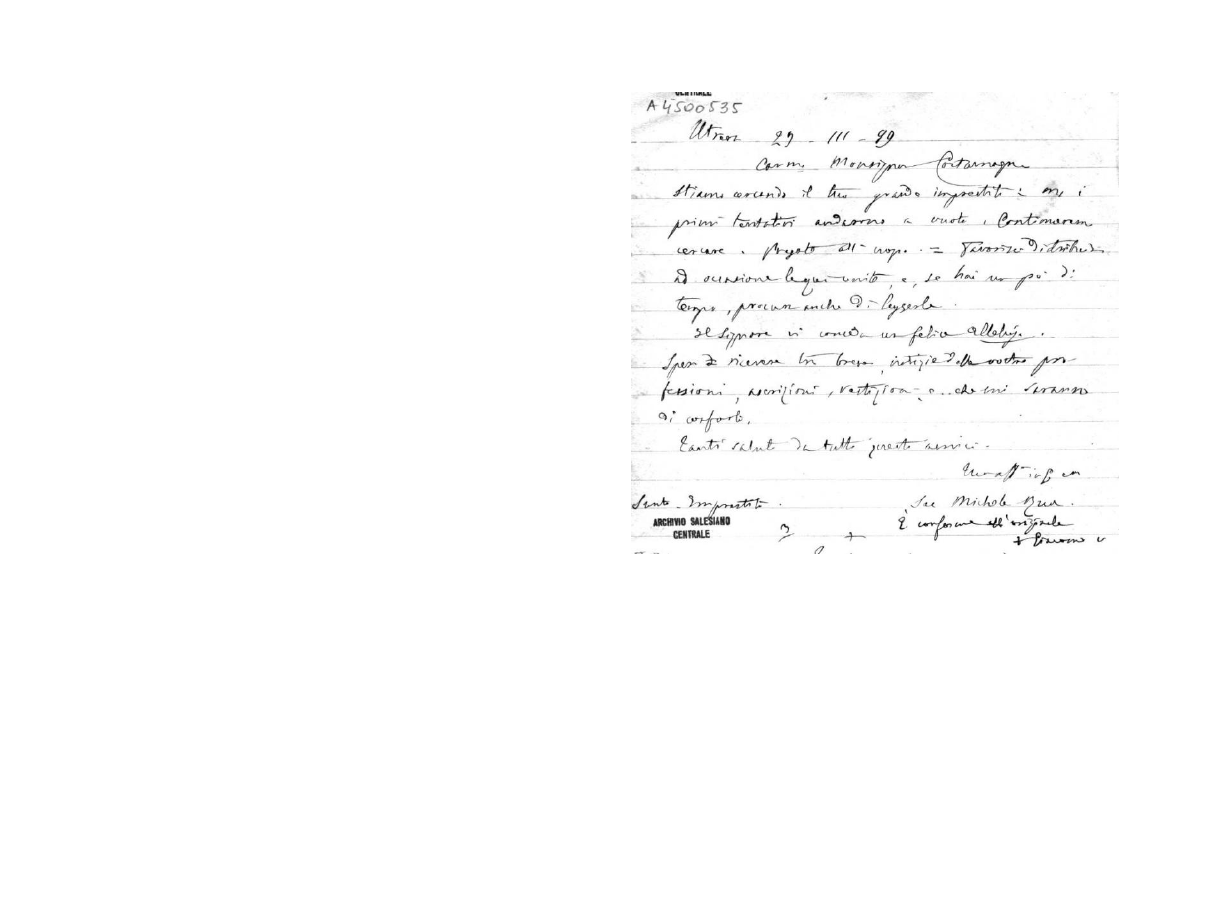 CENTRALE
A4500535
Utrera 29 - III - 99
Carmo Monsignor Costamagna
Stiamo cercando il tuo grande imprestito: ma i
primi tentativi andarono a vuoto. Continuerem
cercare. all' uopo. = Favorisci distribuir
ad occasione le qui unite, e, se hai un po' di
tempo, procura anche di leggerle.
Il Signore vi conceda un felice alleluja.
Spero di ricevere tra breve notizie delle vostre pro
fessioni, ascrizioni, vestizioni, e.. che mi saranno
di conforto.
Tanti saluti da tutti questi amici.
Sac Michele Rua.
Imprestito.
È conforme all'originale
ARCHIVIO SALESIANO
CENTRALE
+ Giacomo v